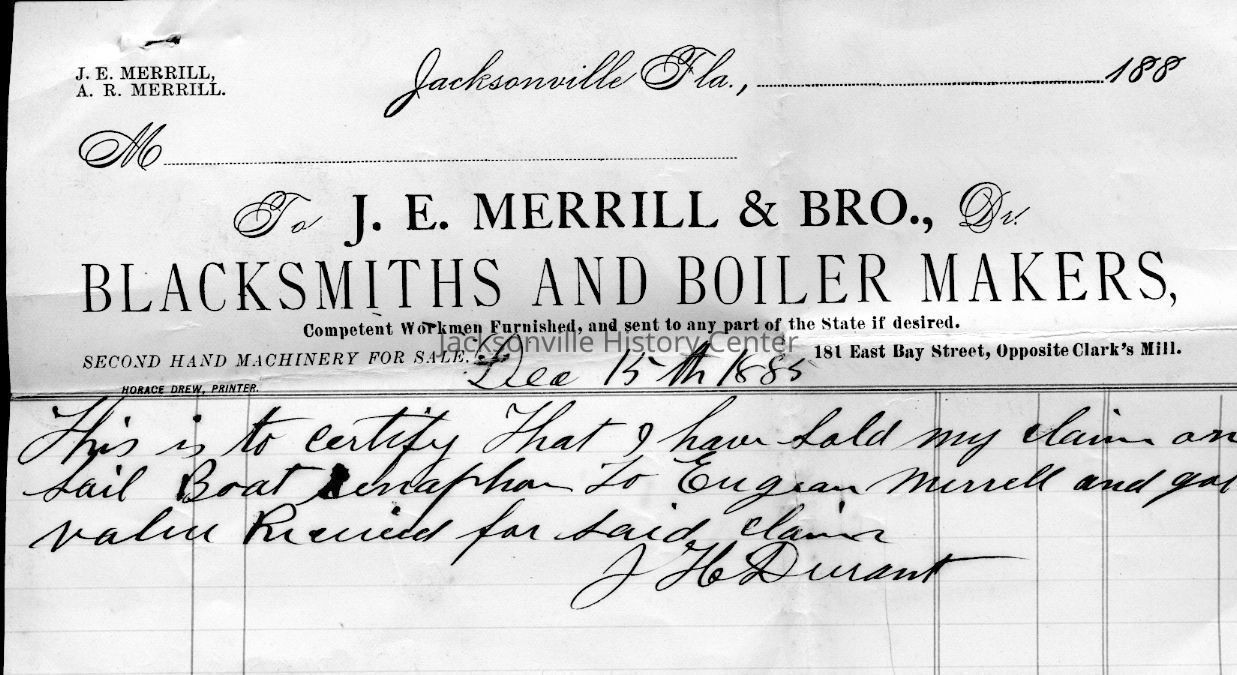 J. E. MERRILL,
A. R. MERRILL.
Jacksonville Fla., 188
M
To J. E. MERRILL & BRO., Dr.
BLACKSMITHS AND BOILER MAKERS,
Competent Workmen Furnished, and sent to any part of the State if desired.
Jacksonville History Center
SECOND HAND MACHINERY FOR SALE. 181 East Bay Street, Opposite Clark's Mill.
Dec 15th 1885
HORACE DREW, PRINTER.
This is to certify That I have Sold my claim on
sail Boat to Eugean Merrell and got
value Received for said claim
J H Durant